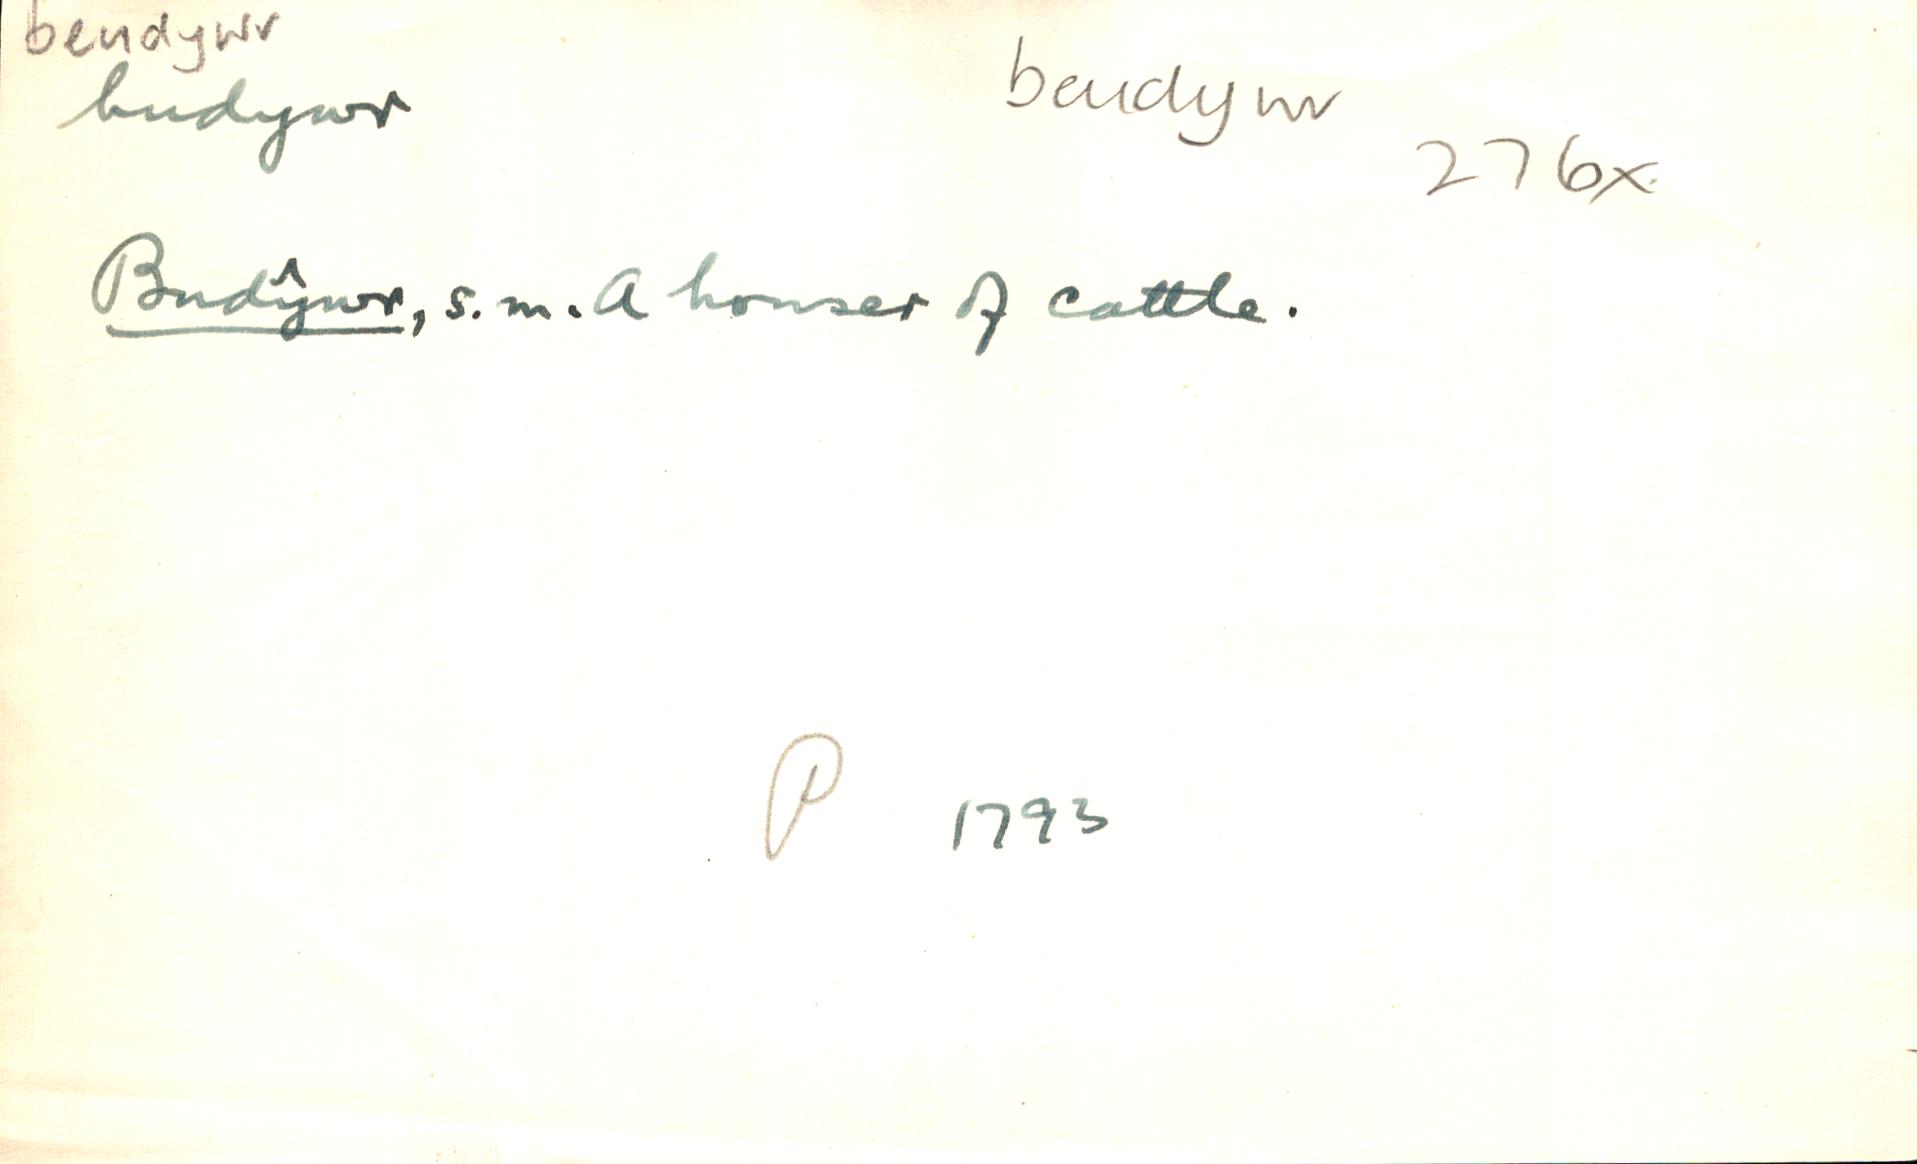 beudywr
budywr
beudywr
276x
Budŷwr, s. m. A houser of cattle.
P 1793